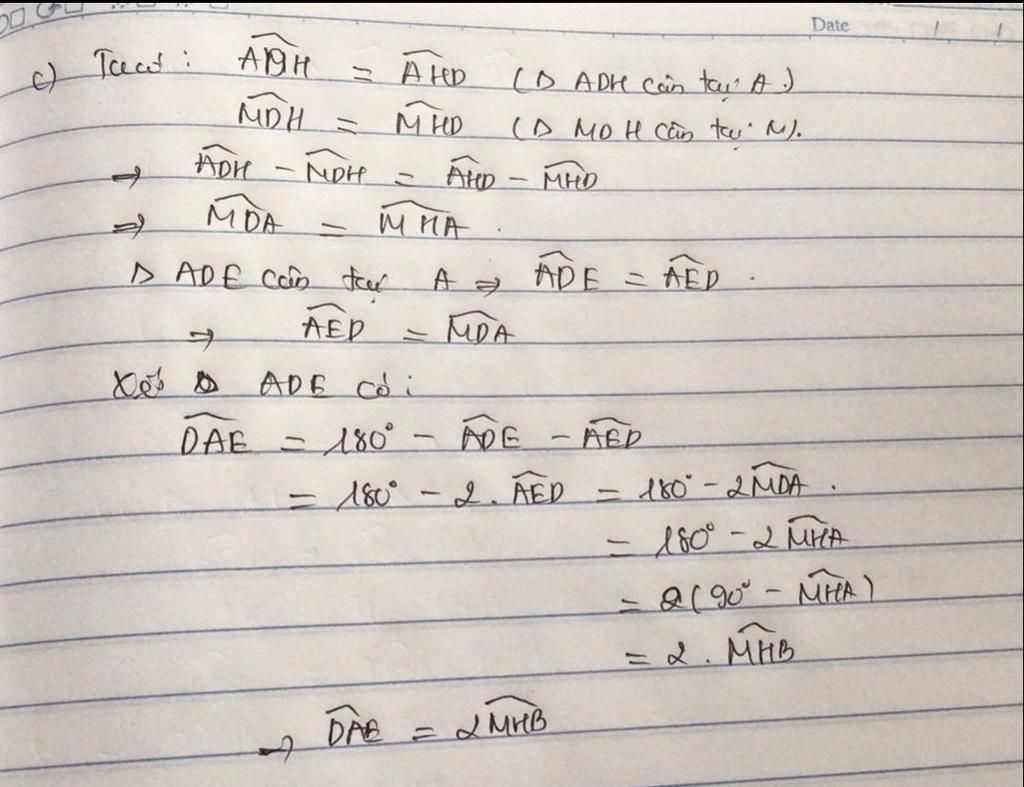 Date / /
c) Ta có : $\widehat{ADH}$ = $\widehat{AHD}$ (Δ ADH cân tại A.)
$\widehat{MDH}$ = $\widehat{MHD}$ (Δ MDH cân tại M).
⇒ $\widehat{ADH}$ - $\widehat{MDH}$ = $\widehat{AHD}$ - $\widehat{MHD}$
⇒ $\widehat{MDA}$ = $\widehat{MHA}$ .
Δ ADE cân tại A ⇒ $\widehat{ADE}$ = $\widehat{AED}$ .
⇒ $\widehat{AED}$ = $\widehat{MDA}$
Xét Δ ADE có :
$\widehat{DAE}$ = 180° - $\widehat{ADE}$ - $\widehat{AED}$
= 180° - 2 . $\widehat{AED}$ = 180° - 2$\widehat{MDA}$ .
= 180° - 2 $\widehat{MHA}$
= 2(90° - $\widehat{MHA}$)
= 2 . $\widehat{MHB}$
⇒ $\widehat{DAE}$ = 2$\widehat{MHB}$